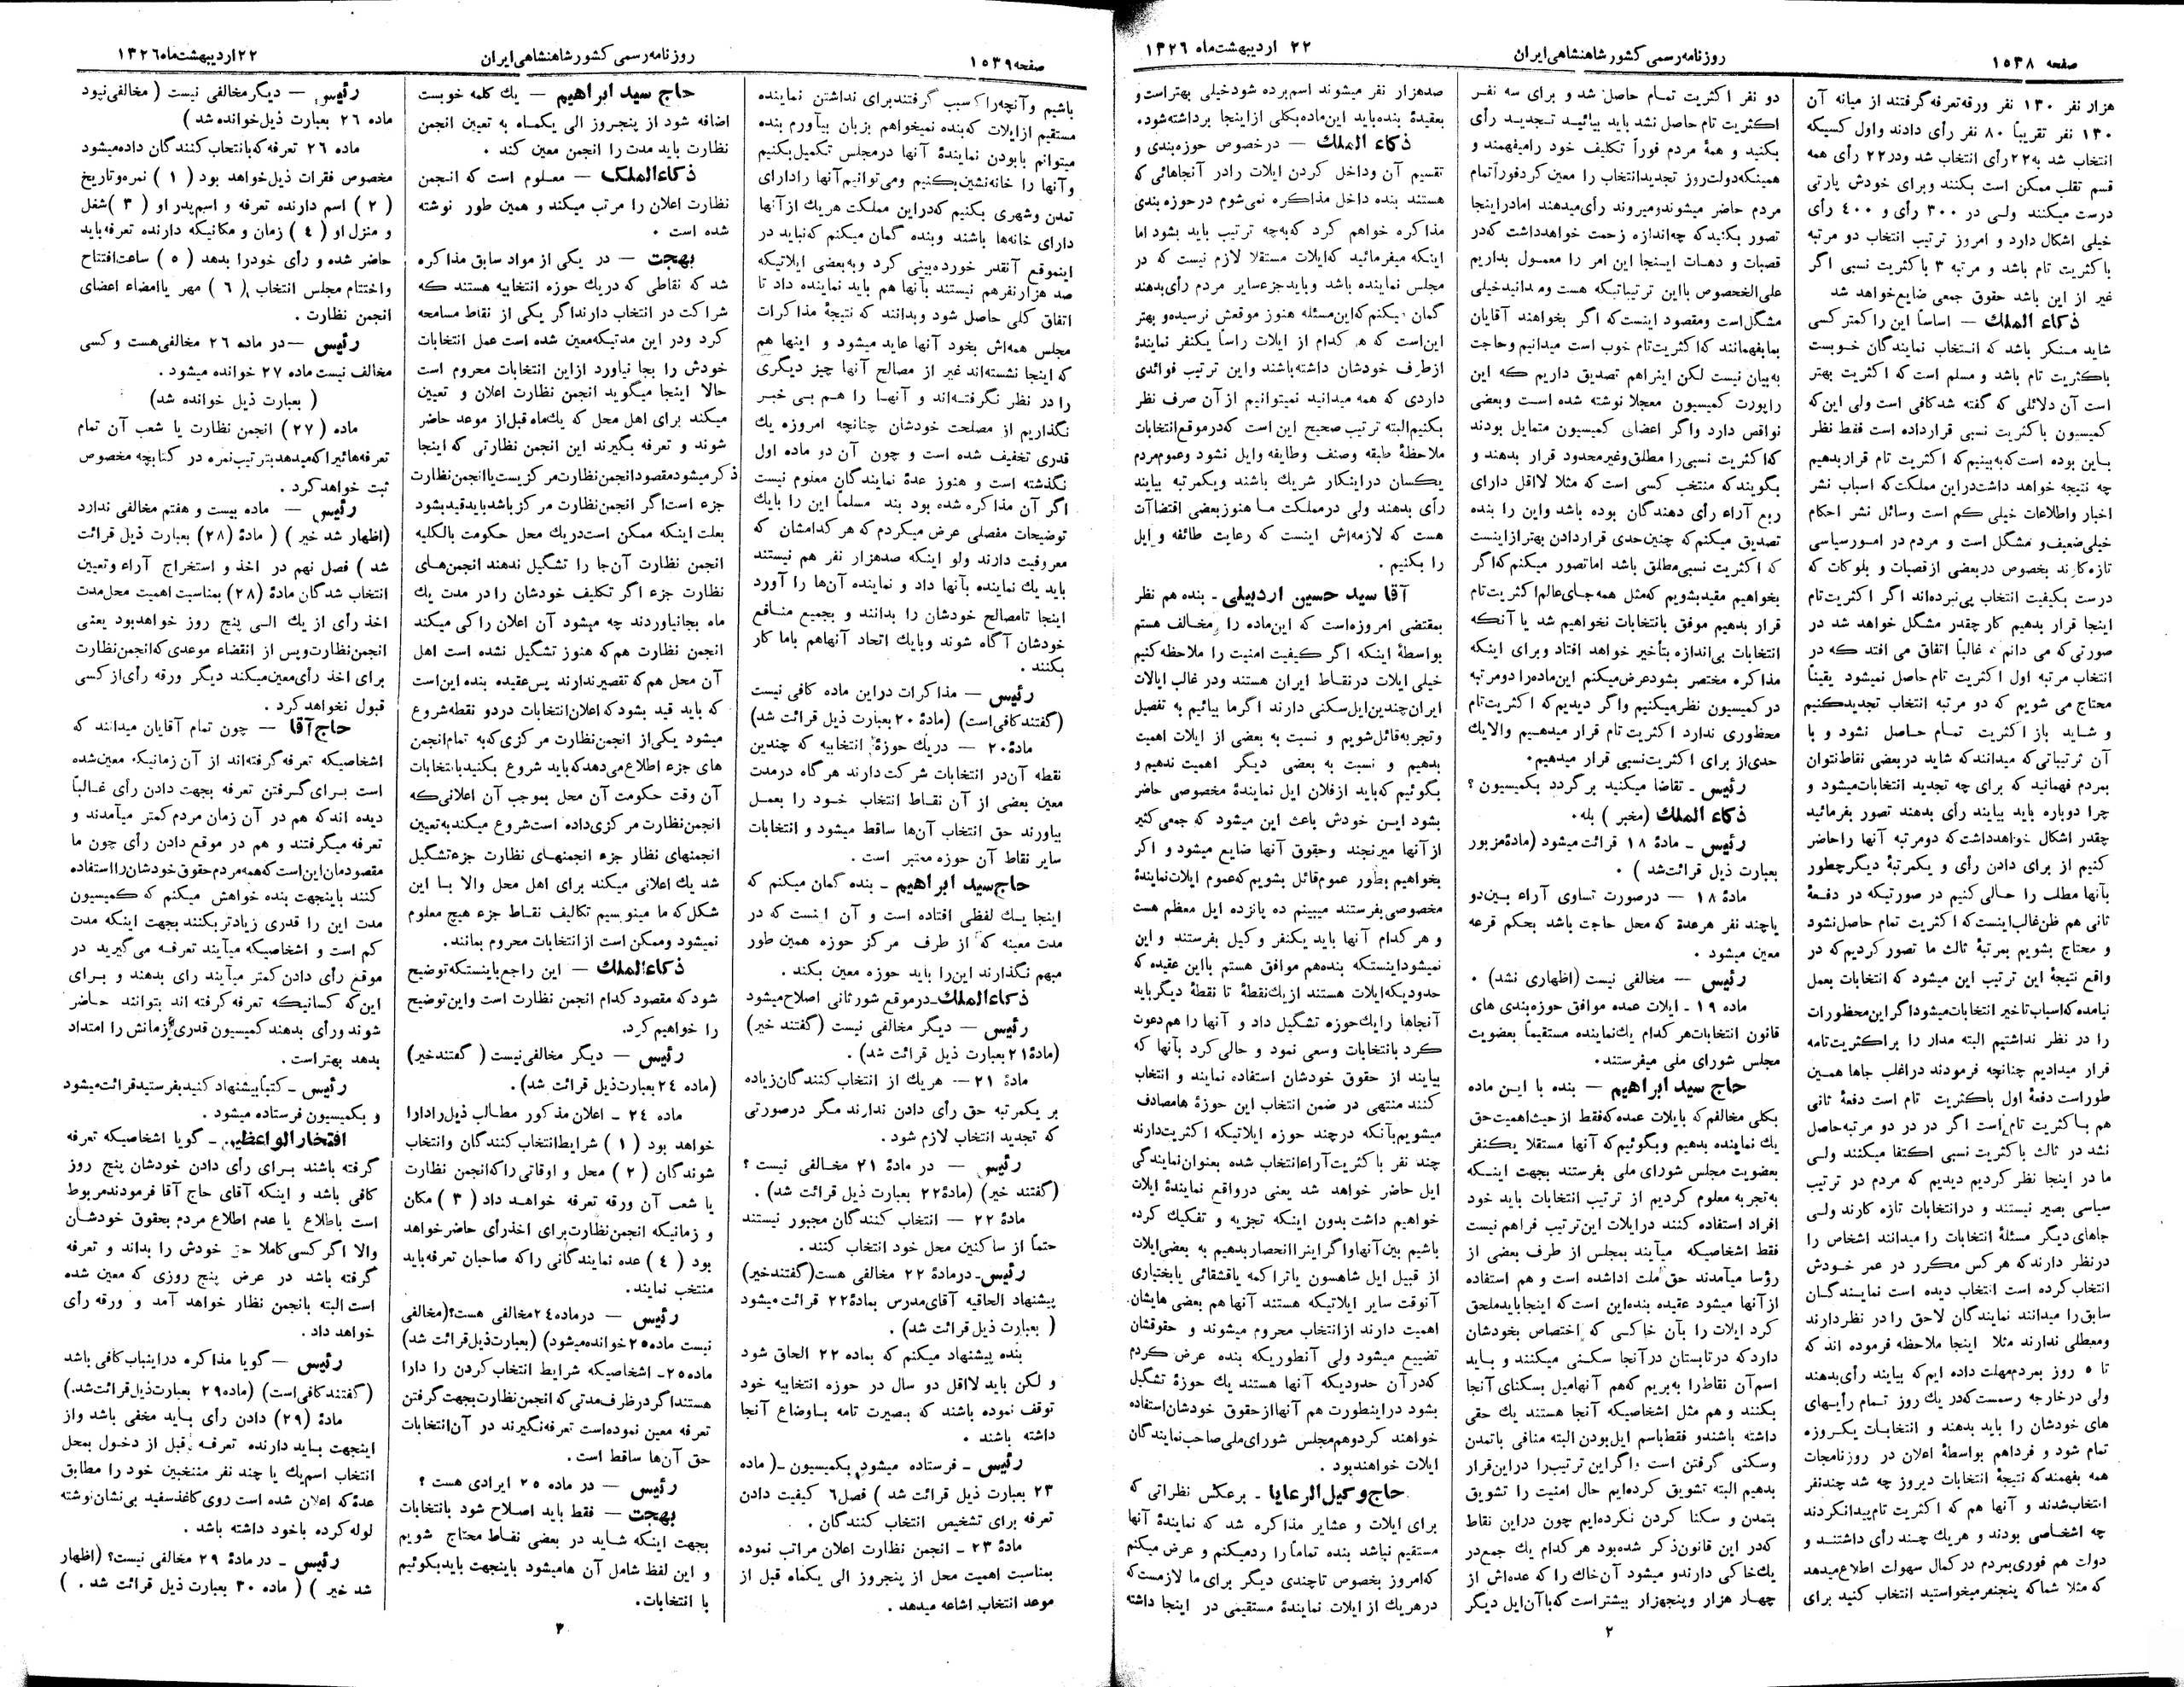 صفحه ۱۵۳۸
روزنامه رسمی کشور شاهنشاهی ایران
۲۲ اردیبهشت ماه ۱۳۲۶
هزار نفر ۱۳۰ نفر ورقه تعرفه گرفتند از میانه آن
۱۳۰ نفر تقریباً ۸۰ نفر رأی دادند واول کسیکه
انتخاب شد به ۲۲ رأی انتخاب شد ودر ۲۲ رأی همه
قسم تقلب ممکن است بکنند وبرای خودش پارتی
درست میکنند ولی در ۳۰۰ رأی و ۴۰۰ رأی
خیلی اشکال دارد و امروز ترتیب انتخاب دو مرتبه
باکثریت تام باشد و مرتبه ۳ باکثریت نسبی اگر
غیر از این باشد حقوق جمعی ضایع خواهد شد
ذکاء الملک – اساساً این را کمتر کسی
شاید منکر باشد که انتخاب نمایندگان خوبست
باکثریت تام باشد و مسلم است که اکثریت بهتر
است آن دلائلی که گفته شد کافی است ولی این که
کمیسیون باکثریت نسبی قرارداده است فقط نظر
باین بوده است که به بینیم که اکثریت تام قرار بدهیم
چه نتیجه خواهد داشت در این مملکت که اسباب نشر
اخبار واطلاعات خیلی کم است وسائل نشر احکام
خیلی ضعیف و مشگل است و مردم در امور سیاسی
تازه کارند بخصوص در بعضی از قصبات و بلوکات که
درست بکیفیت انتخاب پی نبرده‌اند اگر اکثریت تام
اینجا قرار بدهیم کار چقدر مشگل خواهد شد در
صورتی که می دانم غالباً اتفاق می افتد که در
انتخاب مرتبه اول اکثریت تام حاصل نمیشود یقیناً
محتاج می شویم که دو مرتبه انتخاب تجدید کنیم
و شاید باز اکثریت تمام حاصل نشود و با
آن ترتیباتی که میدانند که شاید در بعضی نقاط نتوان
بمردم فهمانید که برای چه تجدید انتخابات میشود و
چرا دوباره باید بیایند رأی بدهند تصور بفرمائید
چقدر اشکال خواهد داشت که دو مرتبه آنها را حاضر
کنیم از برای دادن رأی و یکمرتبهٔ دیگر چطور
بآنها مطلب را حالی کنیم در صورتیکه در دفعهٔ
ثانی هم ظن غالب اینست که اکثریت تمام حاصل نشود
و محتاج بشویم بمرتبهٔ ثالث ما تصور کردیم که در
واقع نتیجهٔ این ترتیب این میشود که انتخابات بعمل
نیامده که اسباب تاخیر انتخابات میشود اگر این محظورات
را در نظر نداشتیم البته مدار را بر اکثریت تامه
قرار میدادیم چنانچه فرمودند در اغلب جاها همین
طور است دفعهٔ اول باکثریت تام است دفعهٔ ثانی
هم باکثریت تام است اگر در در دو مرتبه حاصل
نشد در ثالث باکثریت نسبی اکتفا میکنند ولی
ما در اینجا نظر کردیم دیدیم که مردم در ترتیب
سیاسی بصیر نیستند و در انتخابات تازه کارند ولی
جاهای دیگر مسئلهٔ انتخابات را میدانند اشخاص را
در نظر دارند که هر کس مکرر در عمر خودش
انتخاب کرده است انتخاب دیده است نمایندگان
سابق را میدانند نمایندگان لاحق را در نظر دارند
ومعطلی ندارند مثلا اینجا ملاحظه فرموده اند که
تا ۵ روز بمردم مهلت داده ایم که بیایند رأی بدهند
ولی در خارجه رسمست که در یک روز تمام رأیهای
های خودشان را باید بدهند و انتخابات یکروزه
تمام شود و فرداهم بواسطهٔ اعلان در روزنامجات
همه بفهمند که نتیجهٔ انتخابات دیروز چه شد چند نفر
انتخاب شدند و آنها هم که اکثریت تام پیدا نکردند
چه اشخاصی بودند و هر یک چند رأی داشتند و
دولت هم فوری بمردم در کمال سهولت اطلاع میدهد
که مثلا شما که پنجنفر میخواستید انتخاب کنید برای
دو نفر اکثریت تمام حاصل شد و برای سه نفر
اکثریت تام حاصل نشد باید بیائید تجدید رأی
بکنید و همهٔ مردم فوراً تکلیف خود را میفهمند و
همینکه دولت روز تجدید انتخاب را معین کرد فوراً تمام
مردم حاضر میشوند و میروند رأی میدهند اما در اینجا
تصور بکنید که چه اندازه زحمت خواهد داشت که در
قصبات و دهات اینجا این امر را معمول بداریم
علی الخصوص با این ترتیباتیکه هست ومیدانید خیلی
مشگل است ومقصود اینست که اگر بخواهند آقایان
بما بفهمانند که اکثریت تام خوب است میدانیم و حاجت
به بیان نیست لکن اینراهم تصدیق داریم که این
راپورت کمیسیون معجلا نوشته شده است وبعضی
نواقص دارد واگر اعضای کمیسیون متمایل بودند
که اکثریت نسبی را مطلق وغیر محدود قرار بدهند و
بگویند که منتخب کسی است که مثلا لااقل دارای
ربع آراء رأی دهندگان بوده باشد واین را بنده
تصدیق میکنم که چنین حدی قرار دادن بهتر از اینست
که اکثریت نسبی مطلق باشد اما تصور میکنم که اگر
بخواهیم مقید بشویم که مثل همه جای عالم اکثریت تام
قرار بدهیم موفق بانتخابات نخواهیم شد یا آنکه
انتخابات بی اندازه بتأخیر خواهد افتاد وبرای اینکه
مذاکره مختصر بشود عرض میکنم این ماده را دو مرتبه
در کمیسیون نظر میکنیم واگر دیدیم که اکثریت تام
محظوری ندارد اکثریت تام قرار میدهیم والا یک
حدی از برای اکثریت نسبی قرار میدهیم.
رئیس – تقاضا میکنید بر گردد بکمیسیون ؟
ذکاء الملک (مخبر ) بله.
رئیس – مادهٔ ۱۸ قرائت میشود (مادهٔ مزبور
بعبارت ذیل قرائت شد ) .
مادهٔ ۱۸ – درصورت تساوی آراء بین دو
یا چند نفر هر عده که محل حاجت باشد بحکم قرعه
معین میشود .
رئیس – مخالفی نیست (اظهاری نشد) .
ماده ۱۹ – ایلات عمده موافق حوزه بندی های
قانون انتخابات هر کدام یک نماینده مستقیماً بعضویت
مجلس شورای ملی میفرستند.
حاج سید ابراهیم – بنده با این ماده
بکلی مخالفم که بایلات عمده که فقط از حیث اهمیت حق
یک نماینده بدهیم وبگوئیم که آنها مستقلا یکنفر
بعضویت مجلس شورای ملی بفرستند بجهت اینکه
به تجربه معلوم کردیم از ترتیب انتخابات باید خود
افراد استفاده کنند در ایلات این ترتیب فراهم نیست
فقط اشخاصیکه میآیند بمجلس از طرف بعضی از
رؤسا میآمدند حق ملت اداشده است و هم استفاده
از آنها میشود عقیده بنده این است که اینجا باید ملحق
کرد ایلات را بآن خاکسی که اختصاص بخودشان
دارد که در تابستان در آنجا سکنی میکنند و باید
اسم آن نقاط را به بریم که هم آنها میل بسکنای آنجا
بکنند و هم مثل اشخاصیکه آنجا هستند یک حقی
داشته باشند و فقط باسم ایل بودن البته منافی باتمدن
وسکنی گرفتن است واگر این ترتیب را در این قرار
بدهیم البته تشویق کرده‌ایم حال امنیت را تشویق
بتمدن و سکنا کردن نکرده‌ایم چون در این نقاط
که در این قانون ذکر شده بود هر کدام یک جمع در
یک خاکی دارند و میشود آن خاک را که عده‌اش از
چهار هزار و پنجهزار بیشتر است که با آن ایل دیگر
صد هزار نفر میشوند اسم برده شود خیلی بهتر است و
بعقیدهٔ بنده باید این ماده بکلی از اینجا برداشته شود.
ذکاء الملک – درخصوص حوزه بندی و
تقسیم آن وداخل کردن ایلات را در آنجاهائی که
هستند بنده داخل مذاکره نمی شوم در حوزه بندی
مذاکره خواهم کرد که به چه ترتیب باید بشود اما
اینکه میفرمائید که ایلات مستقلا لازم نیست که در
مجلس نماینده باشد وباید جزء سایر مردم رأی بدهند
گمان میکنم که این مسئله هنوز موقعش نرسیده و بهتر
این است که هر کدام از ایلات راساً یکنفر نمایندهٔ
از طرف خودشان داشته باشند واین ترتیب فوائدی
داردی که همه میدانید نمیتوانیم از آن صرف نظر
بکنیم البته ترتیب صحیح این است که در موقع انتخابات
ملاحظهٔ طبقه وصنف وطایفه وایل نشود وعموم مردم
یکسان در اینکار شریک باشند ویکمرتبه بیایند
رأی بدهند ولی در مملکت ما هنوز بعضی اقتضاآت
هست که لازمه‌اش اینست که رعایت طائفه و ایل
را بکنیم .
آقا سید حسین اردبیلی – بنده هم نظر
بمقتضی امروزه است که این ماده را مخالف هستم
بواسطهٔ اینکه اگر کیفیت امنیت را ملاحظه کنیم
خیلی ایلات در نقاط ایران هستند ودر غالب ایالات
ایران چندین ایل سکنی دارند اگر ما بیائیم به تفصیل
و تجربه قائل شویم و نسبت به بعضی از ایلات اهمیت
بدهیم و نسبت به بعضی دیگر اهمیت ندهیم و
بگوئیم که باید از فلان ایل نمایندهٔ مخصوصی حاضر
بشود این خودش باعث این میشود که جمعی کثیر
از آنها میرنجند وحقوق آنها ضایع میشود و اگر
بخواهیم بطور عموم قائل بشویم که عموم ایلات نمایندهٔ
مخصوصی بفرستند میبینم ده پانزده ایل معظم هست
و هر کدام آنها باید یکنفر وکیل بفرستند و این
نمیشود اینستکه بنده هم موافق هستم با این عقیده که
حدودیکه ایلات هستند از یک نقطهٔ تا نقطهٔ دیگر باید
آنجاها را یک حوزه تشگیل داد و آنها را هم دعوت
کرد بانتخابات وسعی نمود و حالی کرد بآنها که
بیایند از حقوق خودشان استفاده نمایند و انتخاب
کنند منتهی در ضمن انتخاب این حوزهٔ ها مصادف
میشویم بآنکه در چند حوزه ایلاتیکه اکثریت دارند
چند نفر باکثریت آراء انتخاب شده بعنوان نمایندگی
ایل حاضر خواهد شد یعنی در واقع نمایندهٔ ایلات
خواهیم داشت بدون اینکه تجزیه و تفکیک کرده
باشیم بین آنها واگر اینرا انحصار بدهیم به بعضی ایلات
از قبیل ایل شاهسون یا تراکمه یا قشقائی یا بختیاری
آنوقت سایر ایلاتیکه هستند آنها هم بعضی هایشان
اهمیت دارند از انتخاب محروم میشوند و حقوقشان
تضییع میشود ولی آنطوریکه بنده عرض کردم
که در آن حدودیکه آنها هستند یک حوزهٔ تشگیل
بشود در اینطورت هم آنها از حقوق خودشان استفاده
خواهند کرد و هم مجلس شورای ملی صاحب نمایندگان
ایلات خواهند بود .
حاج وکیل الرعایا – برعکس نظراتی که
برای ایلات و عشایر مذاکره شد که نمایندهٔ آنها
مستقیم نباشد بنده تماماً را رد میکنم و عرض میکنم
که امروز بخصوص تا چندی دیگر برای ما لازمست که
در هر یک از ایلات نمایندهٔ مستقیمی در اینجا داشته
۲
صفحه ۱۵۳۹
روزنامه رسمی کشور شاهنشاهی ایران
۲۲ اردیبهشت ماه ۱۳۲۶
باشیم و آنچه را که سبب گرفتند برای نداشتن نماینده
مستقیم از ایلات که بنده نمیخواهم بزبان بیآورم بنده
میتوانم با بودن نمایندهٔ آنها در مجلس تکمیل بکنیم
و آنها را خانه نشین بکنیم و می توانیم آنها را دارای
تمدن وشهری بکنیم که در این مملکت هر یک از آنها
دارای خانه‌ها باشند وبنده گمان میکنم که نباید در
اینموقع آنقدر خورده بینی کرد و به بعضی ایلاتیکه
صد هزار نفر هم نیستند بآنها هم باید نماینده داد تا
اتفاق کلی حاصل شود وبدانند که نتیجهٔ مذاکرات
مجلس همه‌اش بخود آنها عاید میشود و اینها هم
که اینجا نشسته‌اند غیر از مصالح آنها چیز دیگری
را در نظر نگرفته‌اند و آنها را هم بی خبر
نگذاریم از مصلحت خودشان چنانچه امروزه یک
قدری تخفیف شده است و چون آن دو ماده اول
نگذشته است و هنوز عدهٔ نمایندگان معلوم نیست
اگر آن مذاکره شده بود بند مسلماً این را بایک
توضیحات مفصلی عرض میکردم که هر کدامشان که
معروفیت دارند ولو اینکه صدهزار نفر هم نیستند
باید یک نماینده بآنها داد و نماینده آن‌ها را آورد
اینجا تامصالح خودشان را بدانند و بجمیع منافع
خودشان آگاه شوند وبایک اتحاد آنهاهم باما کار
بکنند .
رئیس – مذاکرات در این ماده کافی نیست
(گفتند کافی است) (مادهٔ ۲۰ بعبارت ذیل قرائت شد)
مادهٔ ۲۰ – در یک حوزهٔ انتخابیه که چندین
نقطه آن در انتخابات شرکت دارند هر گاه در مدت
معین بعضی از آن نقاط انتخاب خود را بعمل
بیاورند حق انتخاب آن‌ها ساقط میشود و انتخابات
سایر نقاط آن حوزه معتبر است .
حاج سید ابراهیم – بنده گمان میکنم که
اینجا یک لفظی افتاده است و آن اینست که در
مدت معینه که از طرف مرکز حوزه همین طور
مبهم نگذارند این را باید حوزه معین بکند .
ذکاء الملک – در موقع شور ثانی اصلاح میشود
رئیس – دیگر مخالفی نیست (گفتند خیر)
(مادهٔ ۲۱ بعبارت ذیل قرائت شد) .
مادهٔ ۲۱ – هر یک از انتخاب کنندگان زیاده
بر یکمرتبه حق رأی دادن ندارند مگر در صورتی
که تجدید انتخاب لازم شود .
رئیس – در مادهٔ ۲۱ مخالفی نیست ؟
(گفتند خیر) (مادهٔ ۲۲ بعبارت ذیل قرائت شد) .
مادهٔ ۲۲ – انتخاب کنندگان مجبور نیستند
حتماً از ساکنین محل خود انتخاب کنند .
رئیس – در مادهٔ ۲۲ مخالفی هست (گفتند خیر)
پیشنهاد الحاقیه آقای مدرس بمادهٔ ۲۲ قرائت میشود
( بعبارت ذیل قرائت شد) .
بنده پیشنهاد میکنم که بماده ۲۲ الحاق شود
و لکن باید لااقل دو سال در حوزه انتخابیه خود
توقف نموده باشند که بصیرت تامه باوضاع آنجا
داشته باشند .
رئیس – فرستاده میشود بکمیسیون – ( ماده
۲۳ بعبارت ذیل قرائت شد ) فصل ۶ کیفیت دادن
تعرفه برای تشخیص انتخاب کنندگان .
مادهٔ ۲۳ – انجمن نظارت اعلان مراتب نموده
بمناسبت اهمیت محل از پنجروز الی یکماه قبل از
موعد انتخاب اشاعه میدهد .
حاج سید ابراهیم – یک کلمه خوبست
اضافه شود از پنجروز الی یکماه به تعیین انجمن
نظارت باید مدت را انجمن معین کند .
ذکاءالملک – معلوم است که انجمن
نظارت اعلان را مرتب میکند و همین طور نوشته
شده است .
بهجت – در یکی از مواد سابق مذاکره
شد که نقاطی که در یک حوزه انتخابیه هستند که
شراکت در انتخاب دارند اگر یکی از نقاط مسامحه
کرد ودر این مدتیکه معین شده است عمل انتخابات
خودش را بجا نیاورد از این انتخابات محروم است
حالا اینجا میگوید انجمن نظارت اعلان و تعیین
میکند برای اهل محل که یک ماه قبل از موعد حاضر
شوند و تعرفه بگیرند این انجمن نظارتی که اینجا
ذکر میشود مقصود انجمن نظارت مرکزیست یا انجمن نظارت
جزء است اگر انجمن نظارت مرکز باشد باید قید بشود
بعلت اینکه ممکن است در یک محل حکومت بالکلیه
انجمن نظارت آن‌جا را تشگیل ندهند انجمن‌های
نظارت جزء اگر تکلیف خودشان را در مدت یک
ماه بجا نیاوردند چه میشود آن اعلان را کی میکند
انجمن نظارت هم که هنوز تشگیل نشده است اهل
آن محل هم که تقصیر ندارند پس عقیده بنده این است
که باید قید بشود که اعلان انتخابات در دو نقطه شروع
میشود یکی از انجمن نظارت مرکزی که به تمام انجمن
های جزء اطلاع می‌دهد که باید شروع بکنید بانتخابات
آن وقت حکومت آن محل بموجب آن اعلانی که
انجمن نظارت مرکزی داده است شروع میکند به تعیین
انجمنهای نظار جزء انجمنهای نظارت جزء تشگیل
شد یک اعلانی میکند برای اهل محل والا با این
شکل که ما مینویسیم تکالیف نقاط جزء هیچ معلوم
نمیشود وممکن است از انتخابات محروم بمانند.
ذکاءالملک – این راجع باینستکه توضیح
شود که مقصود کدام انجمن نظارت است واین توضیح
را خواهیم کرد.
رئیس – دیگر مخالفی نیست ( گفتند خیر)
(ماده ۲۴ بعبارت ذیل قرائت شد).
ماده ۲۴ – اعلان مذکور مطالب ذیل را دارا
خواهد بود ( ۱ ) شرایط انتخاب کنندگان وانتخاب
شوندگان ( ۲ ) محل و اوقاتی را که انجمن نظارت
یا شعب آن ورقه تعرفه خواهد داد ( ۳ ) مکان
و زمانیکه انجمن نظارت برای اخذ رأی حاضر خواهد
بود ( ۴ ) عده نمایندگانی را که صاحبان تعرفه باید
منتخب نمایند.
رئیس – در ماده ۲۴ مخالفی هست؟ (مخالفی
نیست ماده ۲۵ خوانده میشود) (بعبارت ذیل قرائت شد)
ماده ۲۵ – اشخاصیکه شرایط انتخاب کردن را دارا
هستند اگر در ظرف مدتی که انجمن نظارت بجهت گرفتن
تعرفه معین نموده است تعرفه نگیرند در آن انتخابات
حق آن‌ها ساقط است .
رئیس – در ماده ۲۵ ایرادی هست ؟
بهجت – فقط باید اصلاح شود بانتخابات
بجهت اینکه شاید در بعضی نقاط محتاج شویم
و این لفظ شامل آن هامیشود باینجهت باید بگوئیم
با انتخابات.
رئیس – دیگر مخالفی نیست ( مخالفی نبود
ماده ۲۶ بعبارت ذیل خوانده شد )
ماده ۲۶ تعرفه که بانتخاب کنندگان داده میشود
مخصوص فقرات ذیل خواهد بود ( ۱ ) نمره و تاریخ
( ۲ ) اسم دارنده تعرفه و اسم پدر او ( ۳ ) شغل
و منزل او ( ۴ ) زمان و مکانیکه دارنده تعرفه باید
حاضر شده و رأی خود را بدهد ( ۵ ) ساعت افتتاح
و اختتام مجلس انتخاب ( ۶ ) مهر یا امضاء اعضای
انجمن نظارت .
رئیس – در ماده ۲۶ مخالفی هست و کسی
مخالف نیست ماده ۲۷ خوانده میشود .
( بعبارت ذیل خوانده شد)
ماده ( ۲۷ ) انجمن نظارت یا شعب آن تمام
تعرفه هائیرا که میدهد بترتیب نمره در کتابچه مخصوص
ثبت خواهد کرد .
رئیس – ماده بیست و هفتم مخالفی ندارد
(اظهار شد خیر ) ( مادهٔ (۲۸) بعبارت ذیل قرائت
شد ) فصل نهم در اخذ و استخراج آراء وتعیین
انتخاب شدگان مادهٔ (۲۸) بمناسبت اهمیت محل مدت
اخذ رأی از یک الی پنج روز خواهد بود یعنی
انجمن نظارت و پس از انقضاء موعدی که انجمن نظارت
برای اخذ رأی معین میکند دیگر ورقه رأی از کسی
قبول نخواهد کرد .
حاج آقا – چون تمام آقایان میدانند که
اشخاصیکه تعرفه گرفته‌اند از آن زمانیکه معین شده
است برای گرفتن تعرفه بجهت دادن رأی غالباً
دیده اند که هم در آن زمان مردم کمتر میآمدند و
تعرفه میگرفتند و هم در موقع دادن رأی چون ما
مقصودمان این است که همه مردم حقوق خودشان را استفاده
کنند باینجهت بنده خواهش میکنم که کمیسیون
مدت این را قدری زیادتر بکنند بجهت اینکه مدت
کم است و اشخاصیکه میآیند تعرفه می گیرند در
موقع رأی دادن کمتر میآیند رای بدهند و برای
این که کسانیکه تعرفه گرفته اند بتوانند حاضر
شوند ورأی بدهند کمیسیون قدری زمانش را امتداد
بدهد بهتر است .
رئیس – کتباً پیشنهاد کنید بفرستید قرائت میشود
و بکمیسیون فرستاده میشود .
افتخار الواعظین – گویا اشخاصیکه تعرفه
گرفته باشند برای رأی دادن خودشان پنج روز
کافی باشد و اینکه آقای حاج آقا فرمودند مربوط
است باطلاع یا عدم اطلاع مردم بحقوق خودشان
والا اگر کسی کاملا حق خودش را بداند و تعرفه
گرفته باشد در عرض پنج روزی که معین شده
است البته بانجمن نظار خواهد آمد و ورقه رأی
خواهد داد .
رئیس – گویا مذاکره در اینباب کافی باشد
(گفتند کافی است) (ماده ۲۹ بعبارت ذیل قرائت شد.)
مادهٔ (۲۹) دادن رأی باید مخفی باشد واز
اینجهت باید دارنده تعرفه قبل از دخول بمحل
انتخاب اسم یک یا چند نفر منتخبین خود را مطابق
عده که اعلان شده است روی کاغذ سفید بی نشان نوشته
لوله کرده باخود داشته باشد .
رئیس – در مادهٔ ۲۹ مخالفی نیست؟ (اظهار
شد خیر ) ( ماده ۳۰ بعبارت ذیل قرائت شد . )
۳